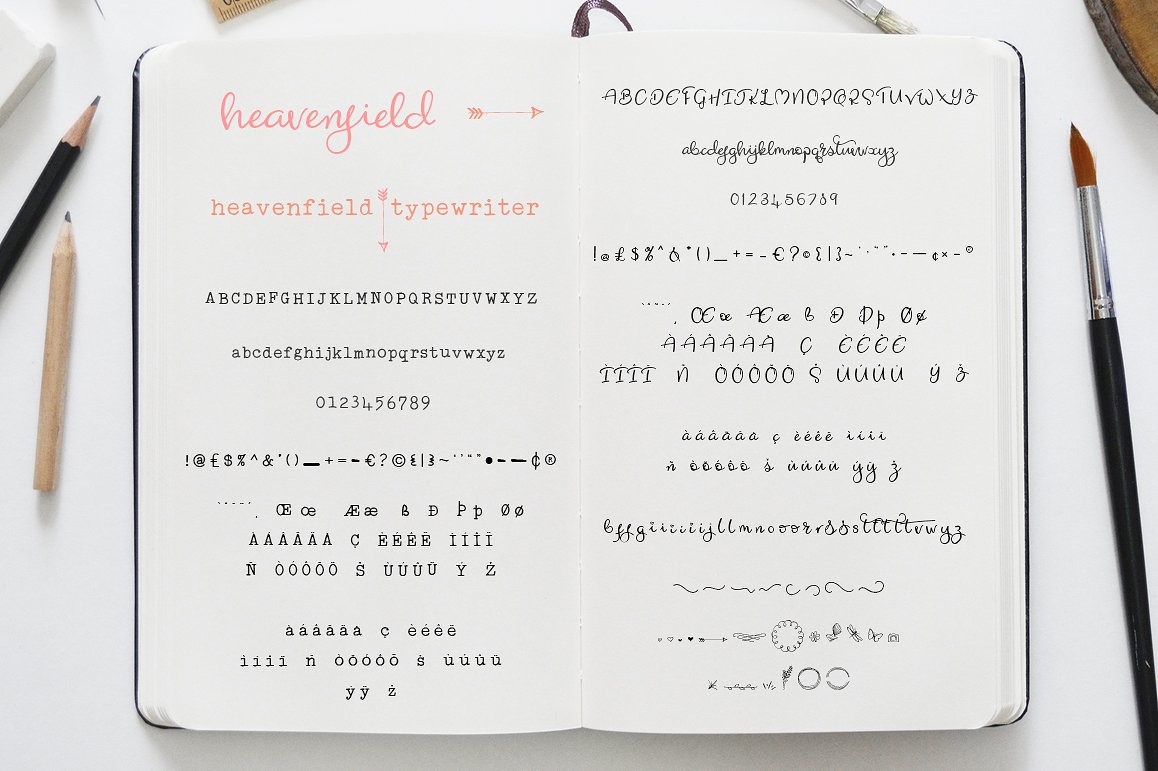 heavenfield
heavenfield typewriter
ABCDEFGHIJKLMNOPQRSTUVWXYZ
abcdefghijklmnopqrstuvwxyz
0123456789
!@£$%^&*()_+=-€?©{|}~`'“”•–—¢®
Œœ Ææ ß Ð Þþ Øø
ÀÁÂÃÄÅ Ç ÈÉÊË ÌÍÎÏ
Ñ ÒÓÔÕÖ Š ÙÚÛÜ Ý Ž
àáâãäå ç èéêë
ìíîï ñ òóôõö š ùúûü
ýÿ ž
ABCDEFGHIJKLMNOPQRSTUVWXYZ
abcdefghijklmnopqrstuvwxyz
0123456789
!@£$%^&*()_+=-€?©{|}~`'“”•–—¢×-®
Œœ Ææ ß Ð Þþ Øø
ÀÁÂÃÄÅ Ç ÈÉÊË
ÌÍÎÏ Ñ ÒÓÔÕÖ Š ÙÚÛÜ Ý Ž
àáâãäå ç èéêë ìíîï
ñ òóôõö š ùúûü ýÿ ž